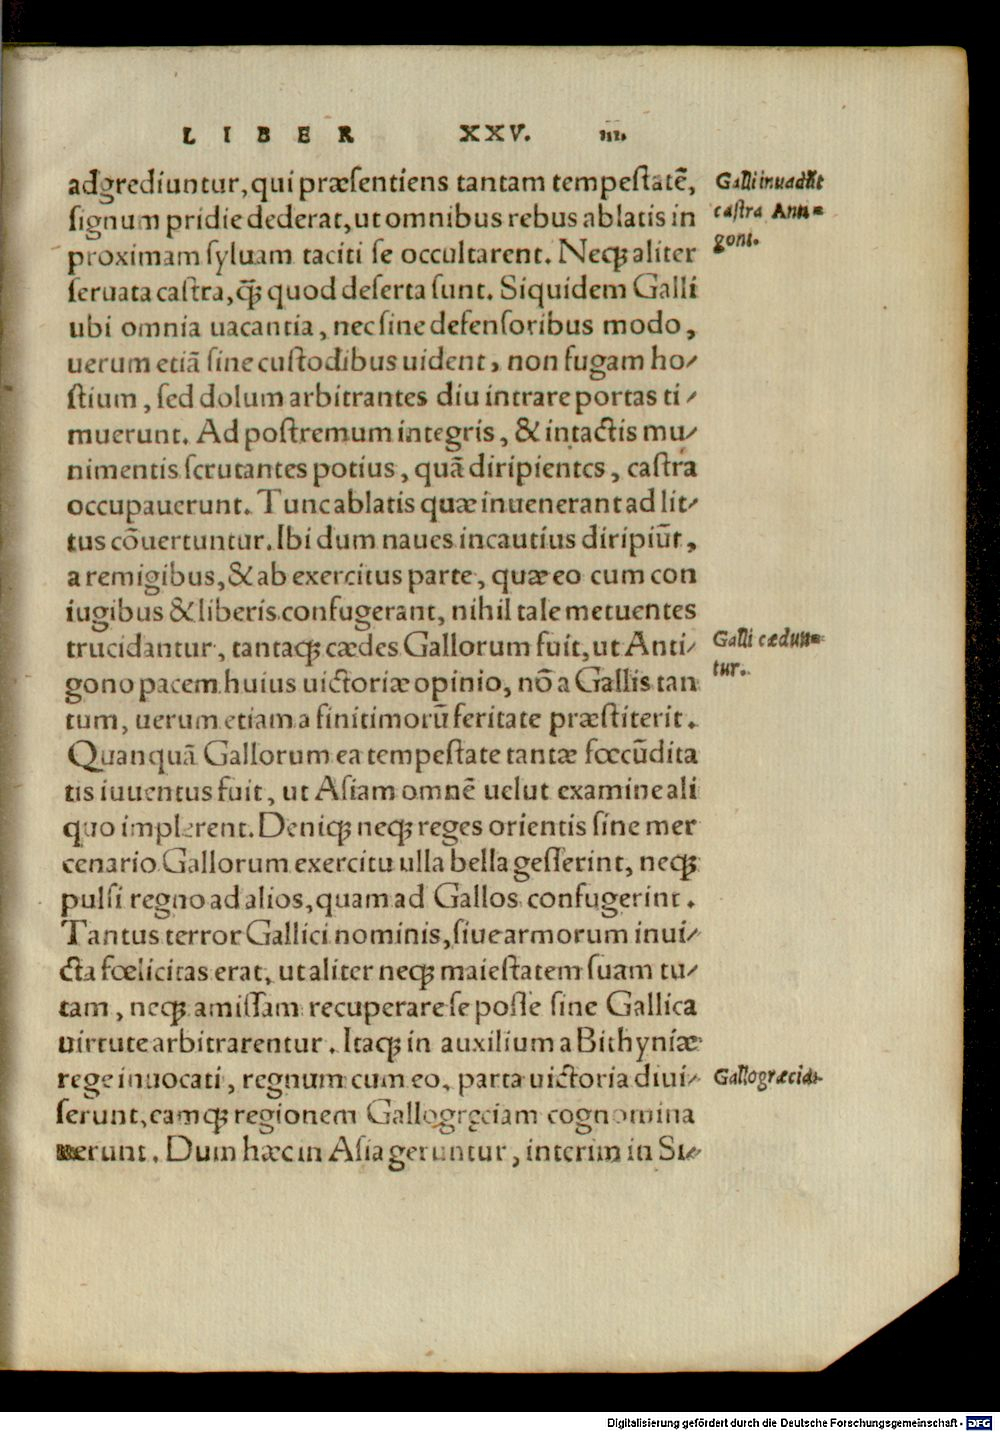 LIBER XXV. III.
adgrediuntur, qui præſentiens tantam tempeſtatē,
ſignum pridie dederat, ut omnibus rebus ablatis in
proximam ſyluam taciti ſe occultarent. Neqꝫ aliter
ſeruata caſtra, q̄ꝫ quod deſerta ſunt. Siquidem Galli
ubi omnia uacantia, nec ſine defenſoribus modo,
uerum etiā ſine cuſtodibus uident, non fugam ho⸗
ſtium, ſed dolum arbitrantes diu intrare portas ti⸗
muerunt. Ad poſtremum integris, & intactis mu⸗
nimentis ſcrutantes potius, quā diripientes, caſtra
occupauerunt. Tunc ablatis quæ inuenerant ad lit⸗
tus cōuertuntur. Ibi dum naues incautius diripiūt,
a remigibus, & ab exercitus parte, quæ eo cum con
iugibus & liberis confugerant, nihil tale metuentes
trucidantur, tantaqꝫ cædes Gallorum fuit, ut Anti⸗
gono pacem huius uictoriæ opinio, nō a Gallis tan
tum, uerum etiam a finitimorū feritate præſtiterit.
Quanquā Gallorum ea tempeſtate tantæ fœcūdita
tis iuuentus fuit, ut Aſiam omnē uelut examine ali
quo implerent. Deniqꝫ neqꝫ reges orientis ſine mer
cenario Gallorum exercitu ulla bella geſſerint, neqꝫ
pulſi regno ad alios, quam ad Gallos confugerint.
Tantus terror Gallici nominis, ſiue armorum inui⸗
cta fœlicitas erat, ut aliter neqꝫ maieſtatem ſuam tu⸗
tam, neqꝫ amiſſam recuperare ſe poſſe ſine Gallica
uirtute arbitrarentur. Itaqꝫ in auxilium a Bithyniæ
rege inuocati, regnum cum eo, parta uictoria diui⸗
ſerunt, eamqꝫ regionem Gallogręciam cognomina
uerunt. Dum hæc in Aſia geruntur, interim in Si⸗
Galli inuadūt
caſtra Anti⸗
goni.
Galli cædun⸗
tur.
Gallogræcia.
Digitalisierung gefördert durch die Deutsche Forschungsgemeinschaft - DFG